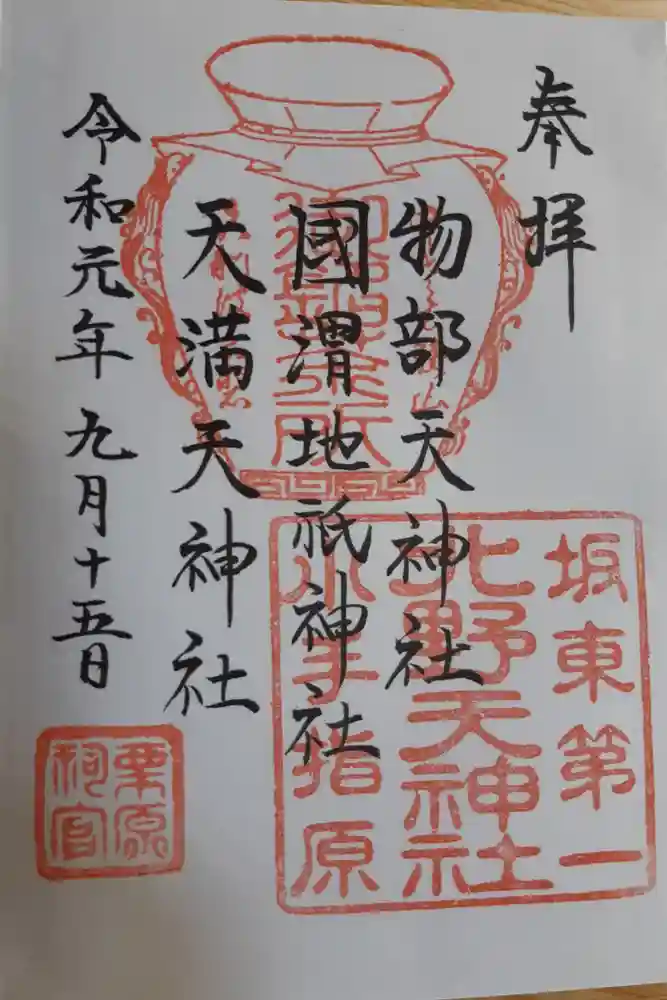 奉拝
物部天神社
國渭地祇神社
天満天神社
令和元年九月十五日
坂東第一
北野天神社
小手指原
栗原
祠官